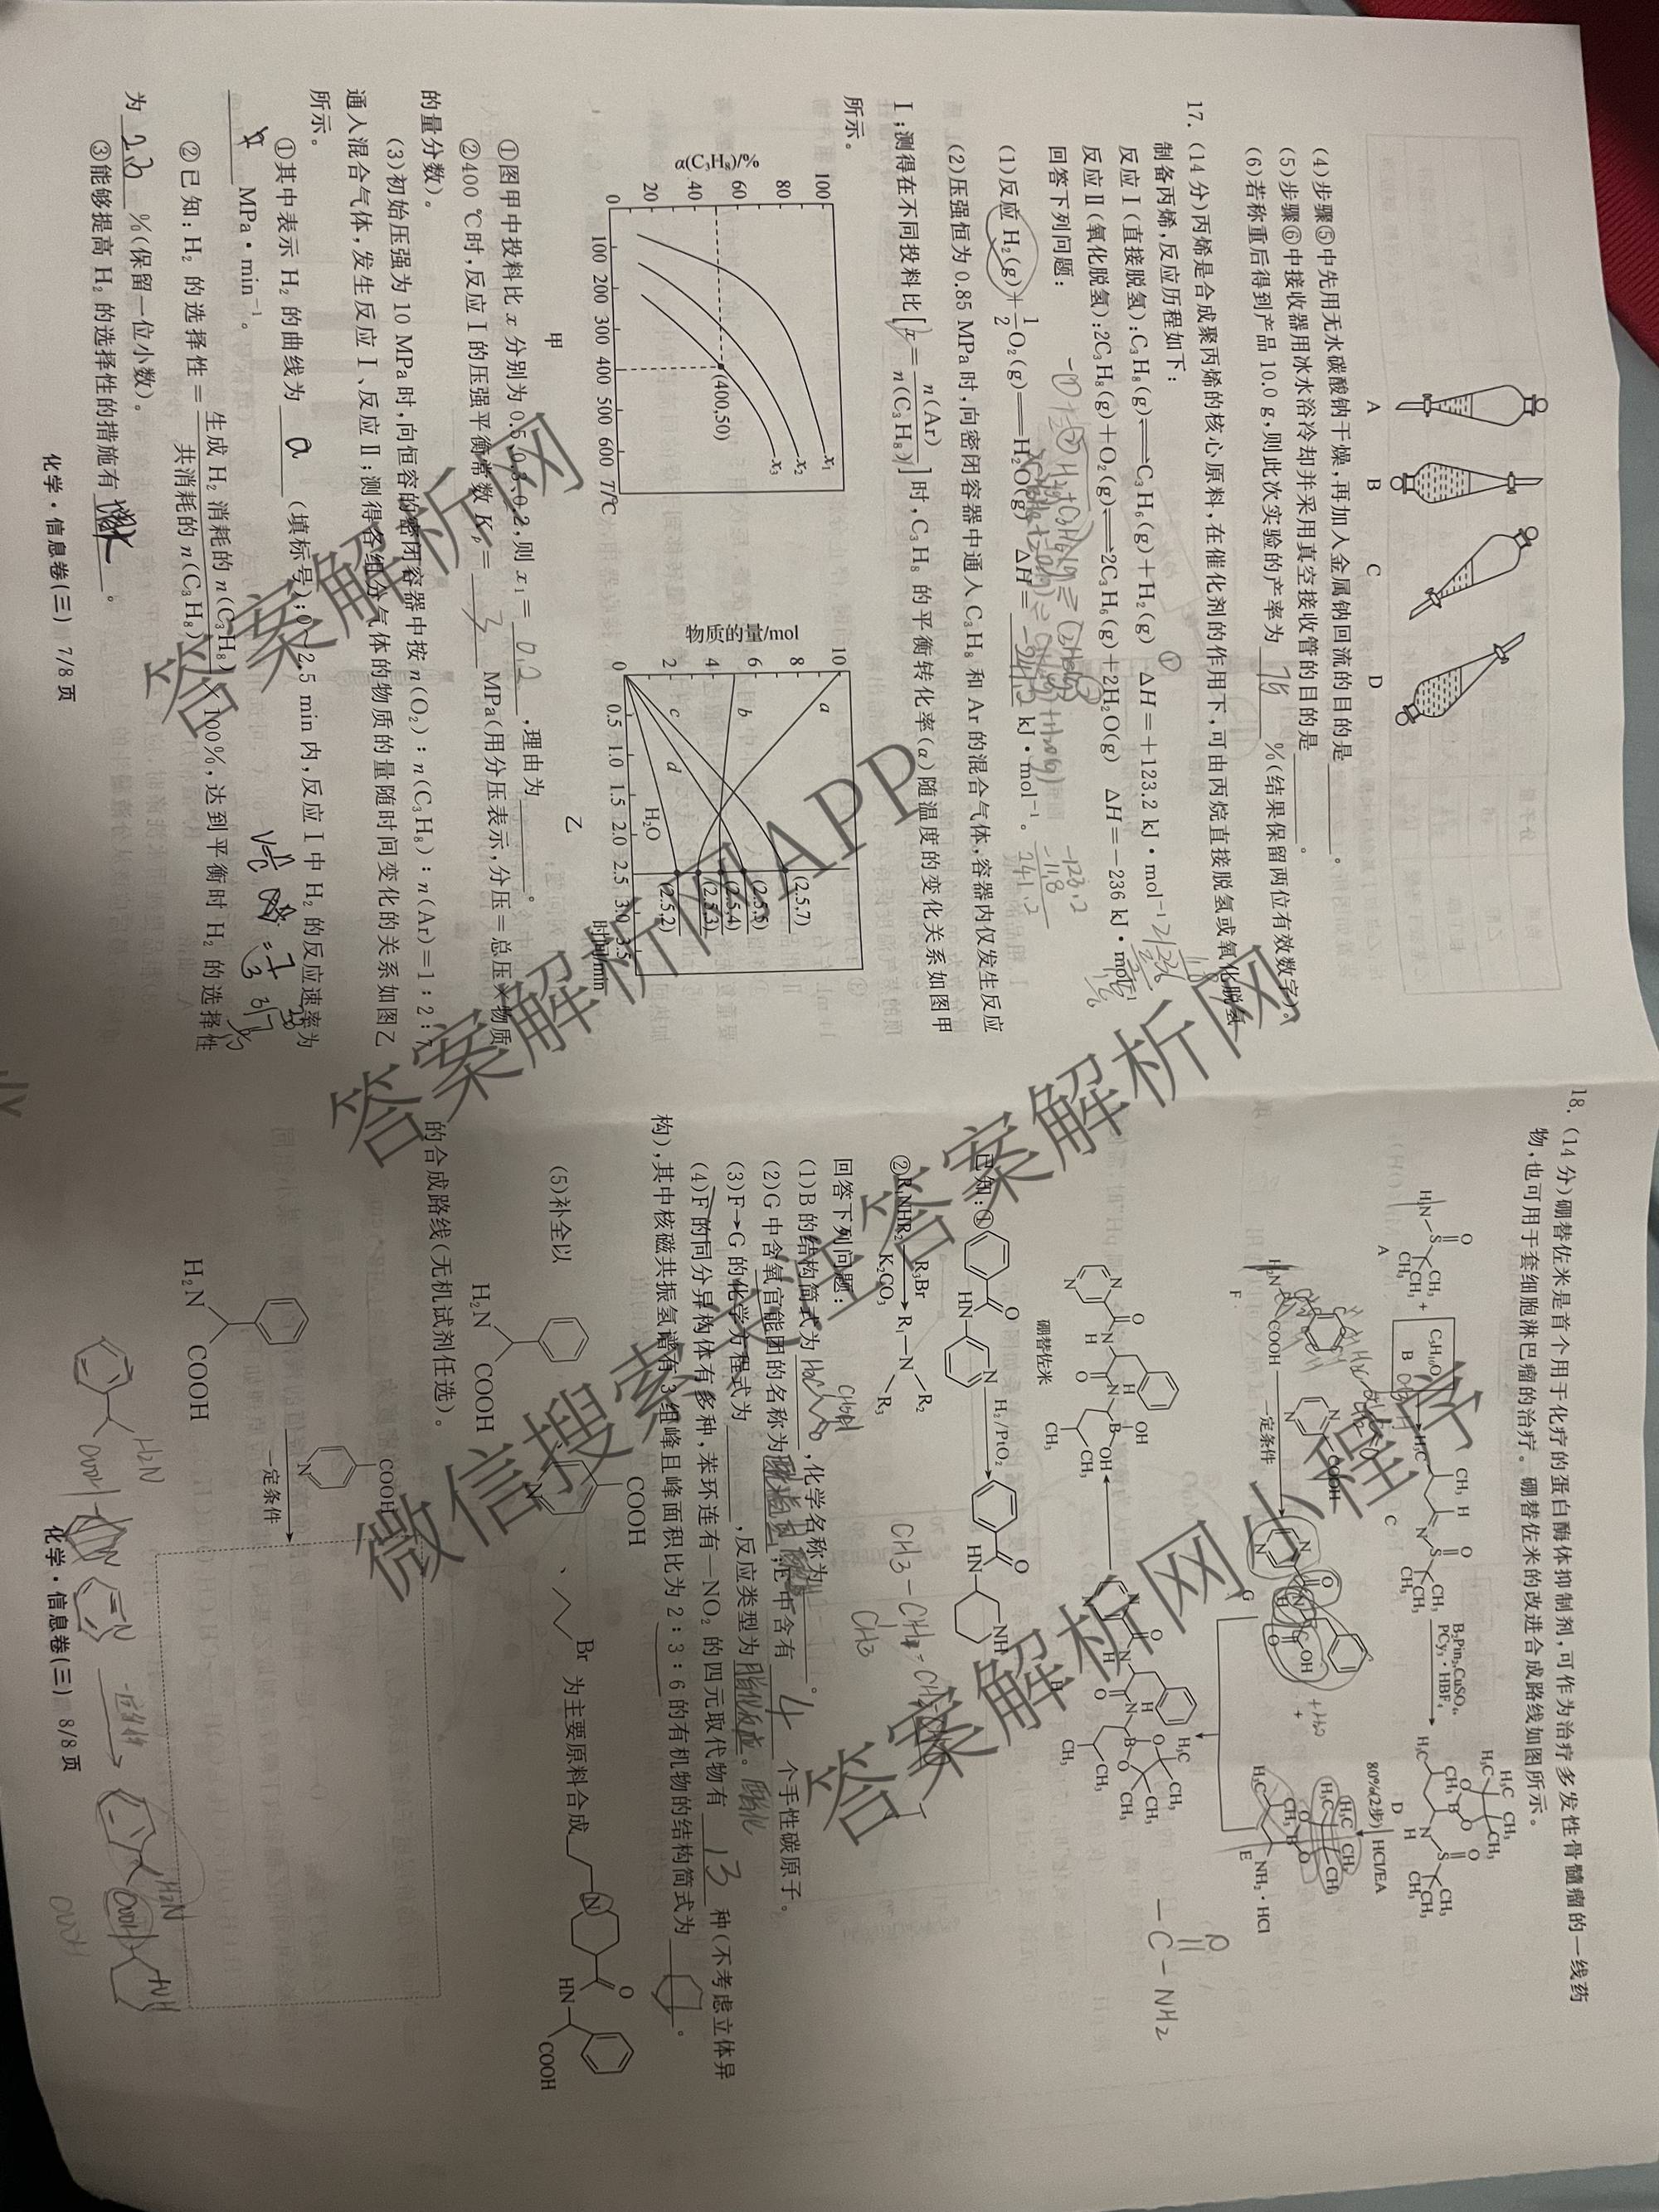 A B C D
(4)步骤⑤中先用无水碳酸钠干燥,再加入金属钠回流的目的是______。
(5)步骤⑥中接收器用冰水浴冷却并采用真空接收管的目的是______。
(6)若称重后得到产品 10.0 g,则此次实验的产率为 75 %(结果保留两位有效数字)。
17. (14 分)丙烯是合成聚丙烯的核心原料,在催化剂的作用下,可由丙烷直接脱氢或氧化脱氢
制备丙烯,反应历程如下:
反应Ⅰ(直接脱氢):C₃H₈(g)⇌C₃H₆(g)+H₂(g) ① ΔH=+123.2 kJ·mol⁻¹
反应Ⅱ(氧化脱氢):2C₃H₈(g)+O₂(g)⇌2C₃H₆(g)+2H₂O(g) ΔH=-236 kJ·mol⁻¹
回答下列问题:
(1)反应 H₂(g)+1/2O₂(g)══H₂O(g) ΔH= -241.2 kJ·mol⁻¹。
-123.2
-118
241.2
(2)压强恒为 0.85 MPa 时,向密闭容器中通入 C₃H₈ 和 Ar 的混合气体,容器内仅发生反应
Ⅰ;测得在不同投料比[x=n(Ar)/n(C₃H₈)]时,C₃H₈ 的平衡转化率(α)随温度的变化关系如图甲
所示。
α(C₃H₈)/%
100
80
60
40
20
0
100 200 300 400 500 600 T/℃
(400,50)
x₁
x₂
x₃
甲
物质的量/mol
10
8
6
4
2
0
0.5 1.0 1.5 2.0 2.5 3.0 3.5
时间/min
a
b
c
d
H₂O
(2.5,7)
(2.5,5)
(2.5,4)
(2.5,3)
(2.5,2)
乙
①图甲中投料比 x 分别为 0.5、0.3、0.2,则 x₁= 0.2 ,理由为______。
②400 ℃时,反应Ⅰ的压强平衡常数 Kₚ= 3 MPa(用分压表示,分压=总压×物质
的量分数)。
(3)初始压强为 10 MPa 时,向恒容的密闭容器中按 n(O₂)∶n(C₃H₈)∶n(Ar)=1∶2∶7
通入混合气体,发生反应Ⅰ、反应Ⅱ;测得各组分气体的物质的量随时间变化的关系如图乙
所示。
①其中表示 H₂ 的曲线为 a (填标号);0~2.5 min 内,反应Ⅰ中 H₂ 的反应速率为
______ MPa·min⁻¹。
②已知:H₂ 的选择性=生成 H₂ 消耗的 n(C₃H₈)/共消耗的 n(C₃H₈)×100%,达到平衡时 H₂ 的选择性
为______%(保留一位小数)。
③能够提高 H₂ 的选择性的措施有______。
化学·信息卷(三) 7/8 页
18. (14 分)硼替佐米是首个用于化疗的蛋白酶体抑制剂,可作为治疗多发性骨髓瘤的一线药
物,也可用于套细胞淋巴瘤的治疗。硼替佐米的改进合成路线如图所示。
H₂N S O CH₃ CH₃ CH₃ A
+
C₅H₁₀O B
H₃C CH₃ H N S O CH₃ CH₃ CH₃ C
B₂Pin₂,CuSO₄, PCy₃·HBF₄
H₃C H₃C CH₃ CH₃ O B O CH₃ H₃C N H S O CH₃ CH₃ CH₃ D
80%(2步) HCl/EA
H₃C H₃C CH₃ CH₃ O B O CH₃ H₃C NH₂·HCl E
H₂N COOH F
N N COOH
一定条件
N N O N H O OH G
+H₂O
N N O N H H N O B O O H₃C CH₃ CH₃ CH₃ CH₃ CH₃ H
N N O N H H N O B OH OH CH₃ CH₃
硼替佐米
已知:①
O HN N H₂/PtO₂ O HN NH
②R₁NHR₂ R₃Br K₂CO₃ R₁—N R₂ R₃
回答下列问题:
(1)B 的结构简式为______,化学名称为______。
(2)G 中含氧官能团的名称为______;E 中含有 4 个手性碳原子。
(3)F→G 的化学方程式为______,反应类型为______。
(4)F 的同分异构体有多种,苯环连有—NO₂ 的四元取代物有 13 种(不考虑立体异
构),其中核磁共振氢谱有 3 组峰且峰面积比为 2∶3∶6 的有机物的结构简式为______。
(5)补全以 H₂N COOH 、 N COOH 、 Br 为主要原料合成 N O HN COOH
的合成路线(无机试剂任选)。
H₂N COOH
N COOH
一定条件
化学·信息卷(三) 8/8 页
答案解析网
答案解析网APP
答案解析网
微信搜索关注答案解析网
答案解析网小程序